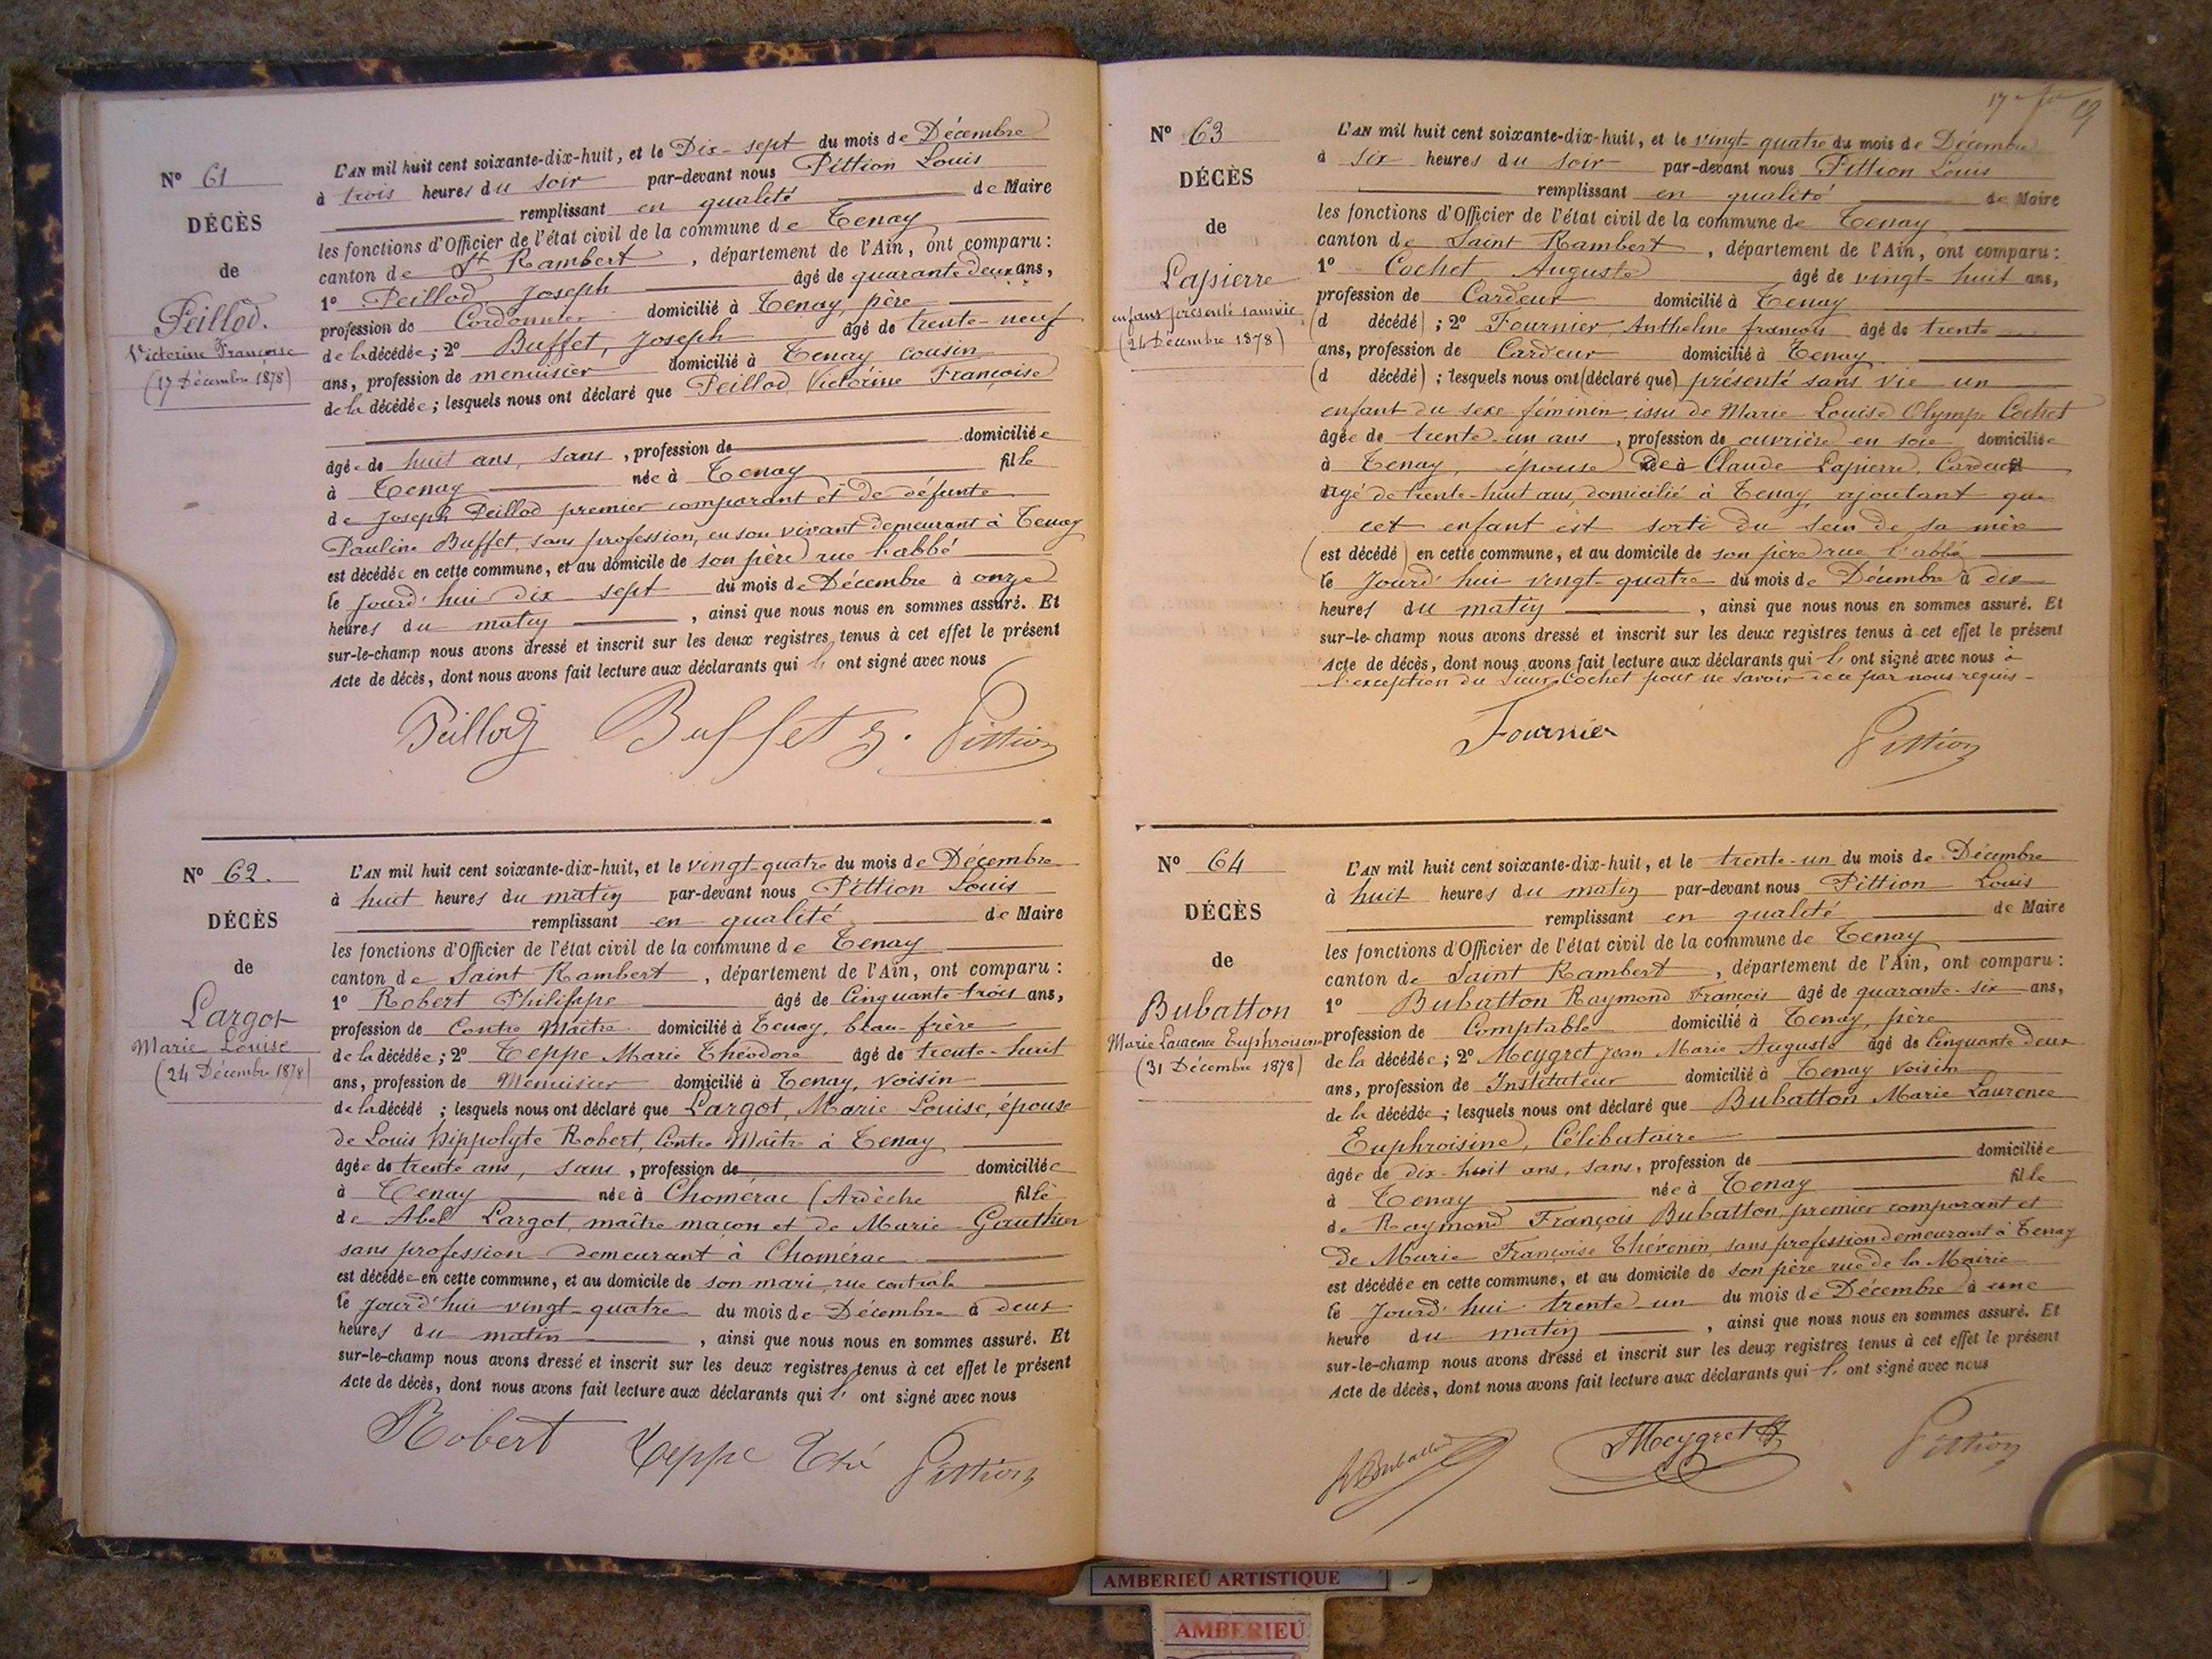 Nº 61
DÉCÈS
de
Peillod.
Victorine Françoise
(17 Décembre 1878)
L'AN mil huit cent soixante-dix-huit, et le Dix-sept du mois de Décembre
à trois heures du soir par-devant nous Pittion Louis
remplissant en qualité de Maire
les fonctions d'Officier de l'état civil de la commune de Tenay
canton de St Rambert, département de l'Ain, ont comparu:
1º Peillod Joseph âgé de quarante deux ans,
profession de Cordonnier domicilié à Tenay, père
de la décédée; 2º Buffet, Joseph âgé de trente-neuf
ans, profession de menuisier domicilié à Tenay cousin
de la décédée; lesquels nous ont déclaré que Peillod Victorine Françoise
âgée de huit ans, sans, profession de domiciliée
à Tenay née à Tenay fille
de Joseph Peillod premier comparant et de défunte
Pauline Buffet, sans profession, en son vivant demeurant à Tenay
est décédée en cette commune, et au domicile de son père rue l'abbé
le jourd'hui dix sept du mois de Décembre à onze
heures du matin, ainsi que nous nous en sommes assuré. Et
sur-le-champ nous avons dressé et inscrit sur les deux registres tenus à cet effet le présent
Acte de décès, dont nous avons fait lecture aux déclarants qui l' ont signé avec nous
Peillod Buffet J. Pittion
Nº 62.
DÉCÈS
de
Largot
Marie Louise
(24 Décembre 1878)
L'AN mil huit cent soixante-dix-huit, et le vingt-quatre du mois de Décembre
à huit heures du matin par-devant nous Pittion Louis
remplissant en qualité de Maire
les fonctions d'Officier de l'état civil de la commune de Tenay
canton de Saint Rambert, département de l'Ain, ont comparu:
1º Robert Philippe âgé de Cinquante trois ans,
profession de Contre Maître domicilié à Tenay, beau-frère
de la décédée; 2º Teppe Marie Théodore âgé de trente-huit
ans, profession de Menuisier domicilié à Tenay, voisin
de la décédé; lesquels nous ont déclaré que Largot, Marie Louise, épouse
de Louis Hippolyte Robert, Contre Maître à Tenay
âgée de trente ans, sans, profession de domiciliée
à Tenay née à Chomérac (Ardèche fille
de Abel Largot, maître maçon et de Marie Gauthier
sans profession demeurant à Chomérac
est décédée en cette commune, et au domicile de son mari, rue centrale
le jourd'hui vingt-quatre du mois de Décembre à deux
heures du matin, ainsi que nous nous en sommes assuré. Et
sur-le-champ nous avons dressé et inscrit sur les deux registres tenus à cet effet le présent
Acte de décès, dont nous avons fait lecture aux déclarants qui l' ont signé avec nous
Robert Teppe Thé Pittion
Nº 63
DÉCÈS
de
Lapierre
enfant présenté sans vie
(24 Décembre 1878)
L'AN mil huit cent soixante-dix-huit, et le vingt-quatre du mois de Décembre
à six heures du soir par-devant nous Pittion Louis
remplissant en qualité de Maire
les fonctions d'Officier de l'état civil de la commune de Tenay
canton de Saint Rambert, département de l'Ain, ont comparu:
1º Cochet Auguste âgé de vingt-huit ans,
profession de Cardeur domicilié à Tenay
(d décédé); 2º Fournier Anthelme françois âgé de trente
ans, profession de Cardeur domicilié à Tenay
(d décédé); lesquels nous ont (déclaré que) présenté sans vie un
enfant du sexe féminin, issu de Marie Louise Olympe Cochet
âgée de trente-un ans, profession de ouvrière en soie domiciliée
à Tenay, épouse de Claude Lapierre, Cardeur
âgé de trente-huit ans, domicilié à Tenay, ajoutant que
cet enfant est sorti du sein de sa mère
(est décédé) en cette commune, et au domicile de son père rue l'abbé
le jourd'hui vingt-quatre du mois de Décembre à dix
heures du matin, ainsi que nous nous en sommes assuré. Et
sur-le-champ nous avons dressé et inscrit sur les deux registres tenus à cet effet le présent
Acte de décès, dont nous avons fait lecture aux déclarants qui l' ont signé avec nous à
l'exception du sieur Cochet pour ne savoir de ce par nous requis
Fournier Pittion
Nº 64
DÉCÈS
de
Bubatton
Marie Laurence Euphroisine
(31 Décembre 1878)
L'AN mil huit cent soixante-dix-huit, et le trente-un du mois de Décembre
à huit heures du matin par-devant nous Pittion Louis
remplissant en qualité de Maire
les fonctions d'Officier de l'état civil de la commune de Tenay
canton de Saint Rambert, département de l'Ain, ont comparu:
1º Bubatton Raymond François âgé de quarante-six ans,
profession de Comptable domicilié à Tenay, père
de la décédée; 2º Meygret jean Marie Auguste âgé de Cinquante deux
ans, profession de Instituteur domicilié à Tenay voisin
de la décédée; lesquels nous ont déclaré que Bubatton Marie Laurence
Euphroisine, Célibataire
âgée de dix-huit ans, sans, profession de domiciliée
à Tenay née à Tenay fille
de Raymond François Bubatton premier comparant et
de Marie Françoise Thévenin, sans profession demeurant à Tenay
est décédée en cette commune, et au domicile de son père rue de la Mairie
le Jourd'hui trente un du mois de Décembre à une
heure du matin, ainsi que nous nous en sommes assuré. Et
sur-le-champ nous avons dressé et inscrit sur les deux registres tenus à cet effet le présent
Acte de décès, dont nous avons fait lecture aux déclarants qui l' ont signé avec nous
R Bubatton Meygret Pittion
AMBERIEU ARTISTIQUE
AMBERIEU